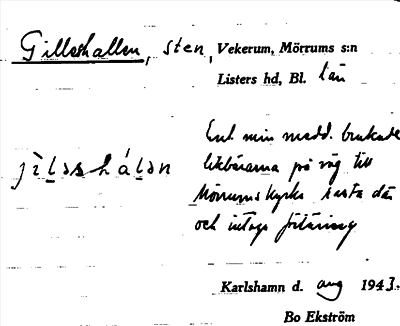 Gilleshallen, sten, Vekerum, Mörrums s:n
Listers hd, Bl. län
Enl. min medd. brukade
jìləshálən likbärarna på väg till
Mörrums kyrka rasta där
och intaga förtäring
Karlshamn d. aug 1943.
Bo Ekström